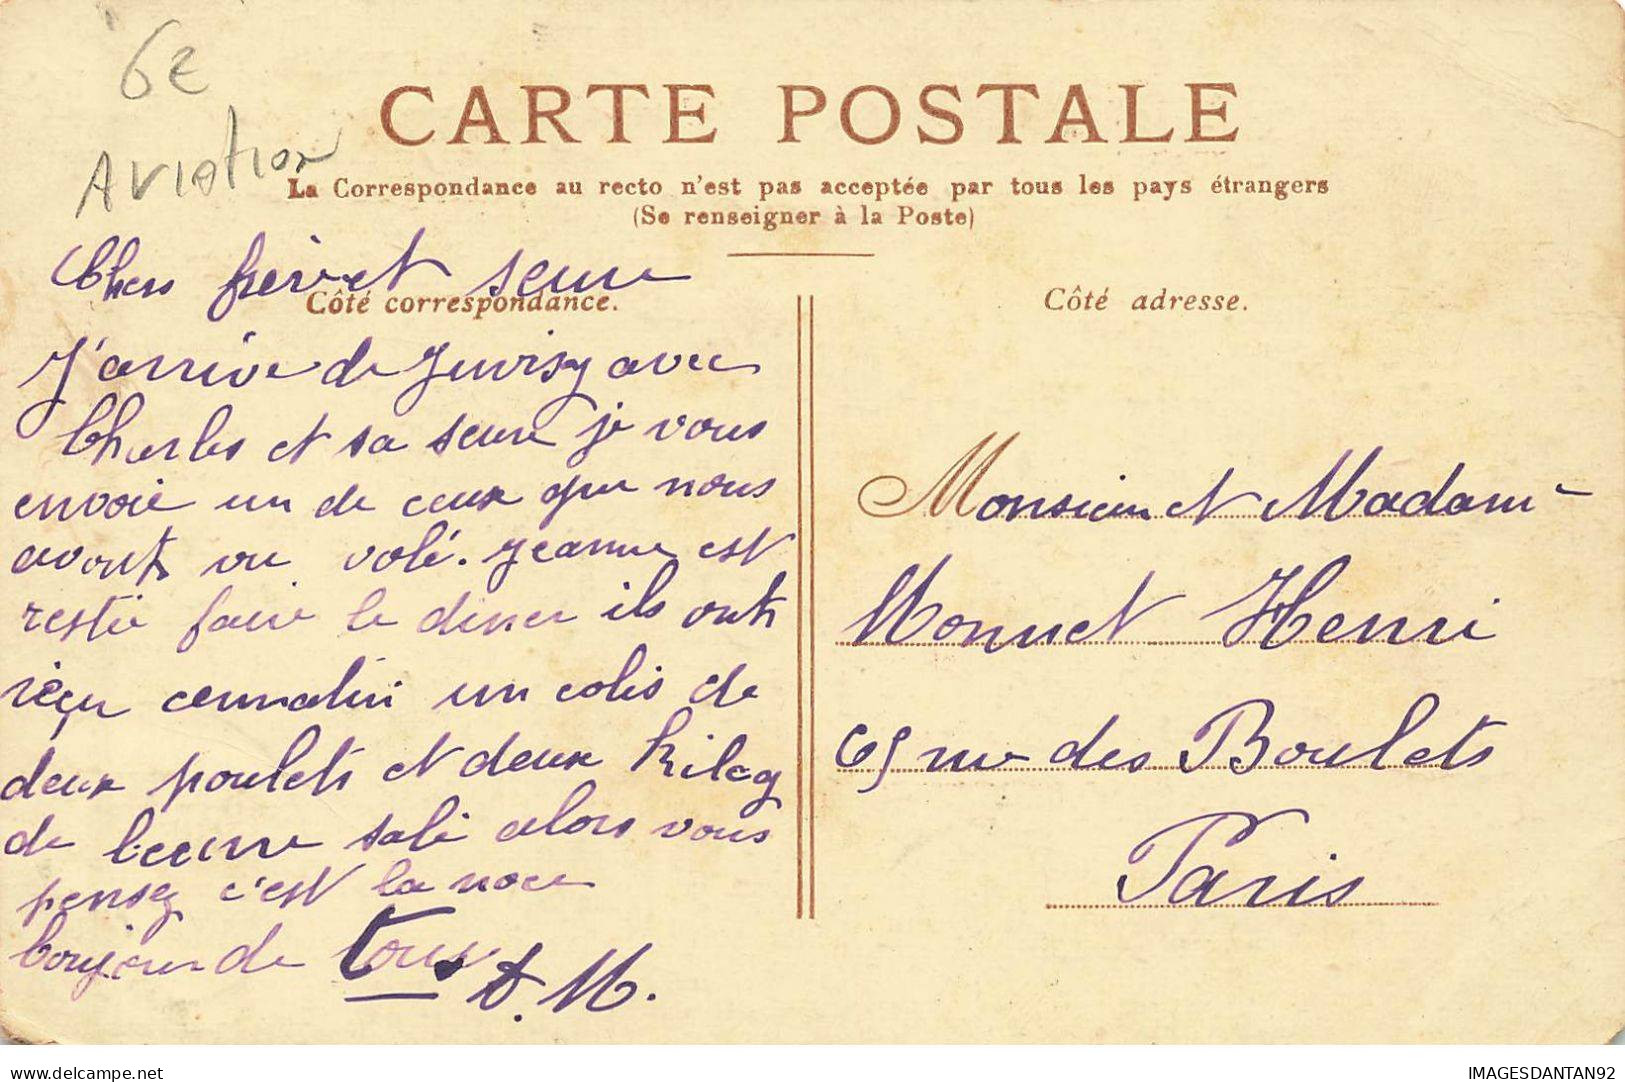 6€
Aviation
CARTE POSTALE
La Correspondance au recto n'est pas acceptée par tous les pays étrangers
(Se renseigner à la Poste)
Chers frère et seure
Côté correspondance.
J'arrive de Juvisy avec
Charles et sa seure je vous
envoie un de ceux que nous
avont vu volé. Jeanne est
resté faire le diner ils ont
reçu ce matin un colis de
deux poulets et deux kilog
de beurre salé alors vous
pensez c'est la noce
bonjour de tous
D.M.
Côté adresse.
Monsieur et Madame
Monnet Henri
65 rue des Boulets
Paris
IMAGESDANTAN92
delcampe.net